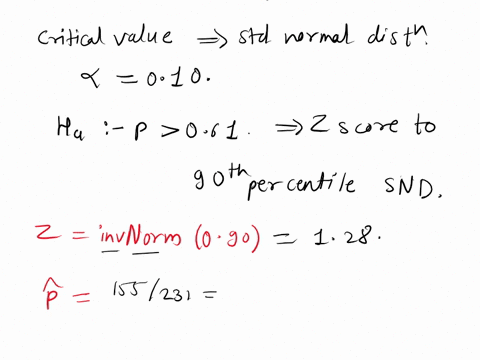 Critical value ⇒ std normal distⁿ.
α = 0.10.
Ha :- P > 0.61. ⇒ Z score to
90th percentile SND.
Z = invNorm (0.90) = 1.28.
p̂ = 155/231 =